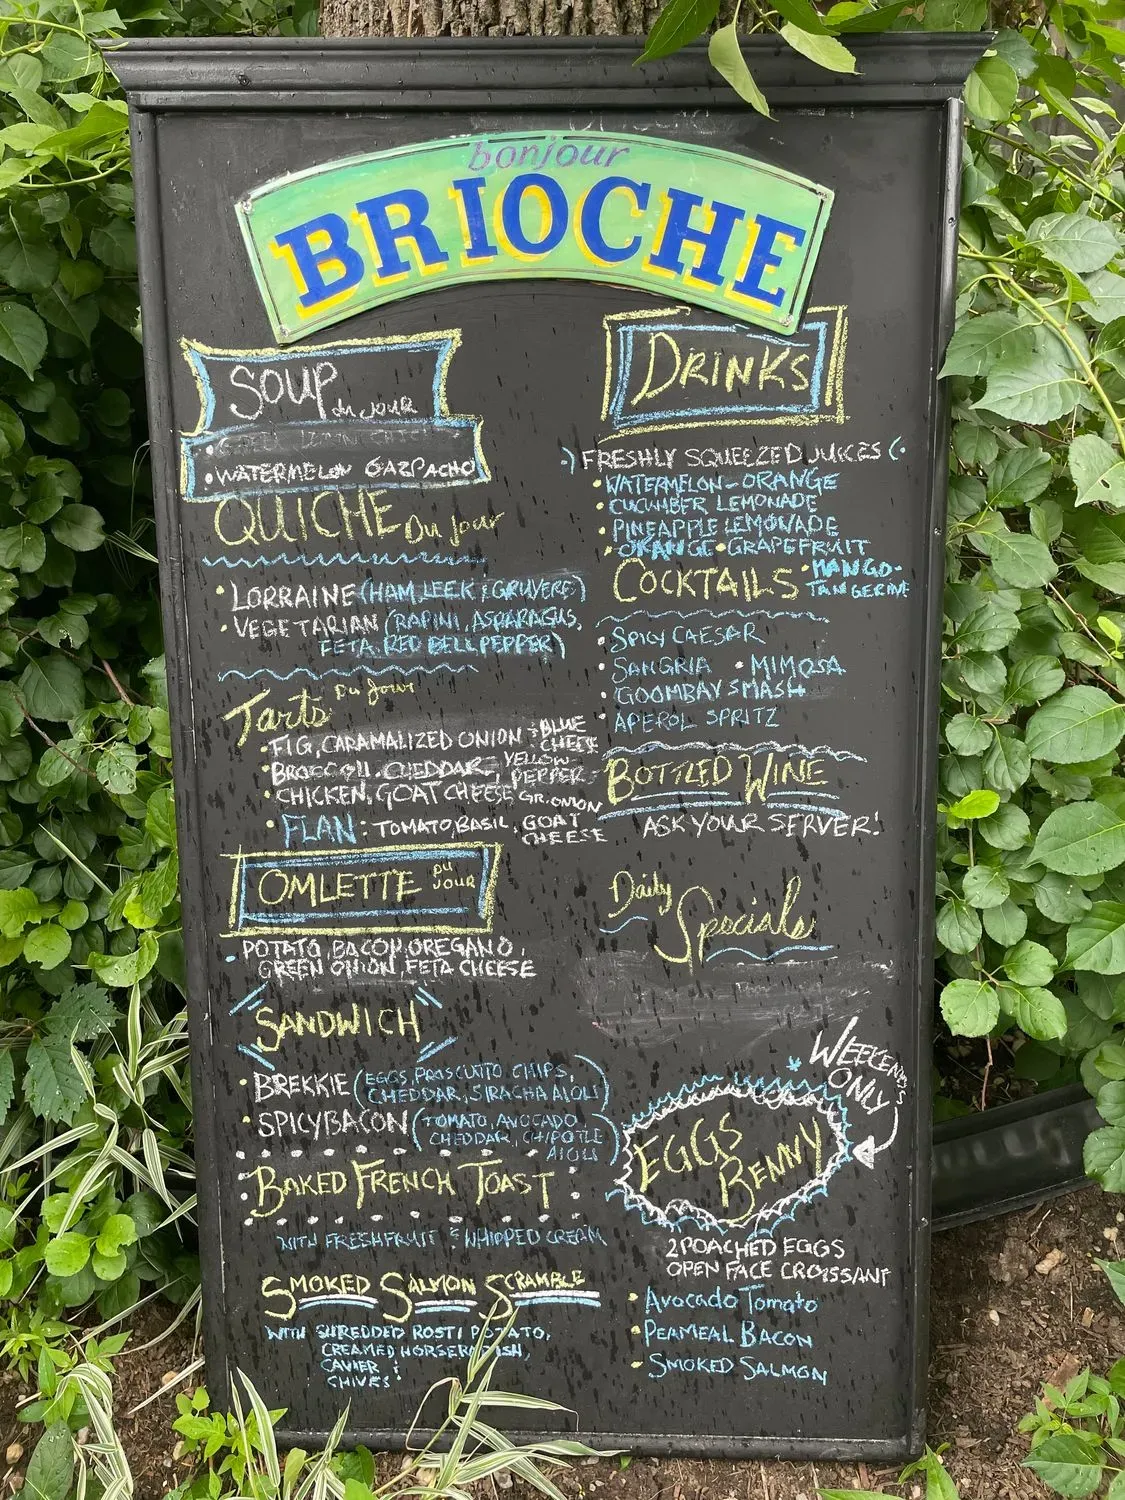 bonjour
BRIOCHE
SOUP du Jour
• WATERMELON GAZPACHO
QUICHE Du Jour
• LORRAINE (HAM, LEEK & GRUYERE)
• VEGETARIAN (RAPINI, ASPARAGUS,
FETA, RED BELL PEPPER)
Tarts Du Jour
• FIG, CARAMALIZED ONION & BLUE
CHEESE
• BROCCOLI, CHEDDAR, YELLOW
PEPPER
• CHICKEN, GOAT CHEESE GR. ONION
• FLAN: TOMATO, BASIL, GOAT
CHEESE
OMLETTE DU
JOUR
• POTATO, BACON, OREGANO,
GREEN ONION, FETA CHEESE
SANDWICH
• BREKKIE (EGGS, PROSCUTTO CHIPS,
CHEDDAR, SIRACHA AIOLI)
• SPICY BACON (TOMATO, AVOCADO,
CHEDDAR, CHIPOTLE
AIOLI)
BAKED FRENCH TOAST
WITH FRESH FRUIT & WHIPPED CREAM
SMOKED SALMON SCRAMBLE
WITH SHREDDED ROSTI POTATO,
CREAMED HORSERADISH,
CAVIER &
CHIVES
DRINKS
FRESHLY SQUEEZED JUICES
• WATERMELON - ORANGE
• CUCUMBER LEMONADE
• PINEAPPLE LEMONADE
• ORANGE • GRAPEFRUIT
• MANGO-
TANGERINE
COCKTAILS
• SPICY CAESAR
• SANGRIA • MIMOSA
• GOOMBAY SMASH
• APEROL SPRITZ
BOTTLED WINE
ASK YOUR SERVER!
Daily
Specials
WEEKENDS
ONLY
EGGS
BENNY
2 POACHED EGGS
OPEN FACE CROISSANT
• AVOCADO TOMATO
• PEAMEAL BACON
• SMOKED SALMON